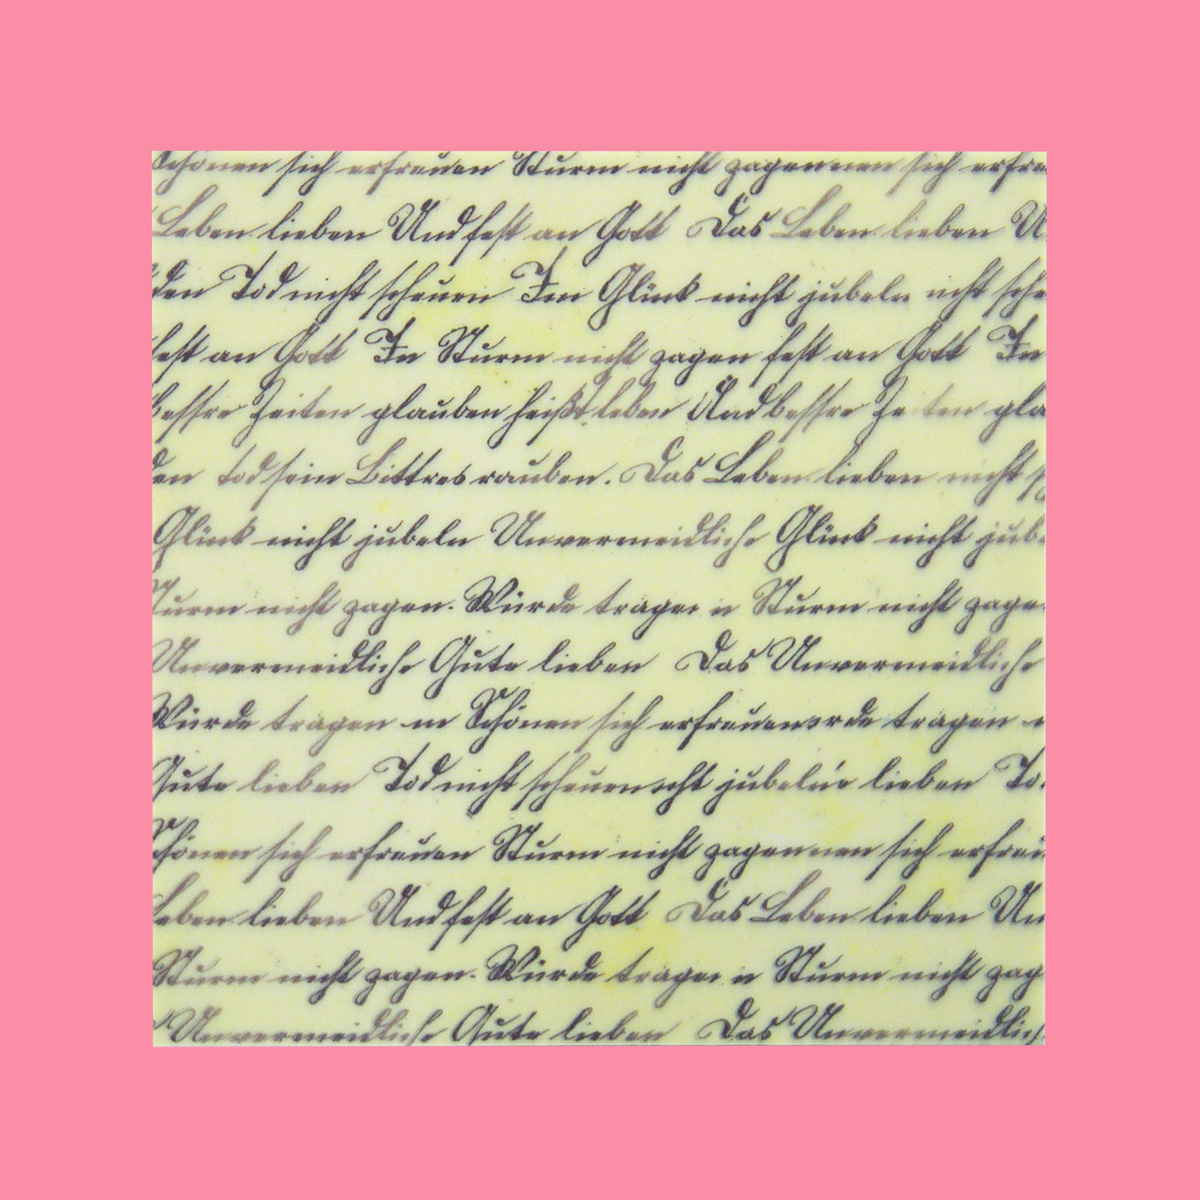 Schönen sich erfreuen Sturm nicht zagennen sich erfre
Leben lieben Und fest an Gott Das Leben lieben U
den Tod nicht scheuen Im Glück nicht jubeln nicht sche
fest an Gott In Sturm nicht zagen fest an Gott In
bessre Zeiten glauben heißt leben Und bessre Zeiten gla
den Tod sein Bittres rauben. Das Leben lieben nicht
Glück nicht jubeln Unvermeidliche Glück nicht jube
Sturm nicht zagen. Würde tragen Sturm nicht zage
Unvermeidliche Gute lieben Das Unvermeidliche
Würde tragen Schönen sich erfreuen rde tragen
Gute lieben Tod nicht scheuen cht jubeln lieben To
Schönen sich erfreuen Sturm nicht zagennen sich erfreu
Leben lieben Und fest an Gott Das Leben lieben Un
Sturm nicht zagen. Würde tragen Sturm nicht zag
Unvermeidliche Gute lieben Das Unvermeidlich